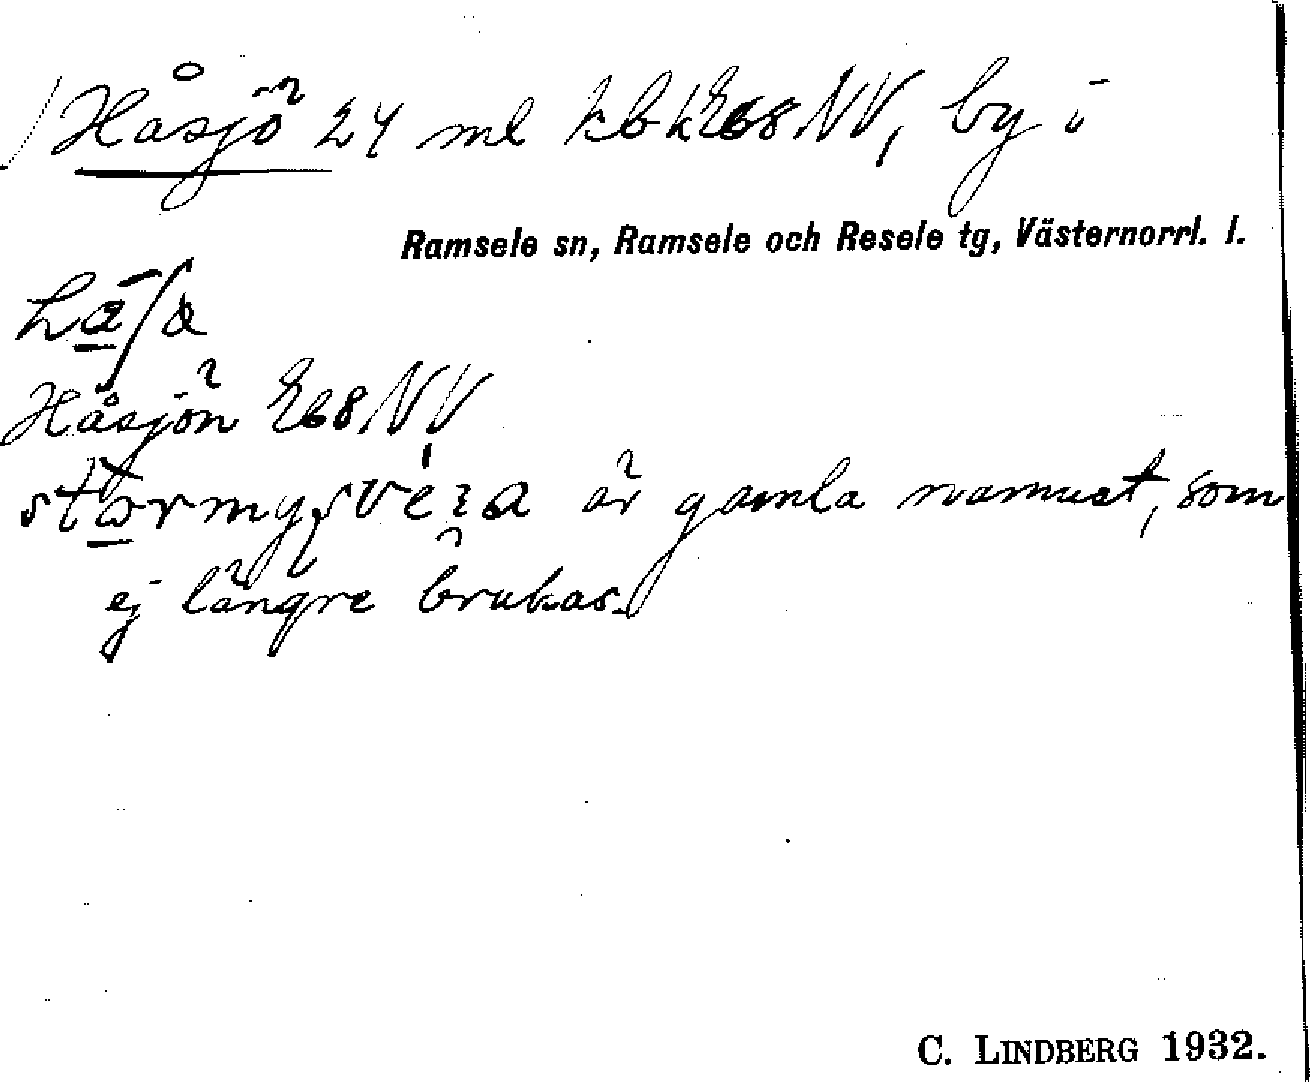 Håsjö 24 ml kbk E68 NV, by i
Ramsele sn, Ramsele och Resele tg, Västernorrl. l.
Håsjön E68 NV
är gamla namnet, som
ej längre brukas.
C. LINDBERG 1932.